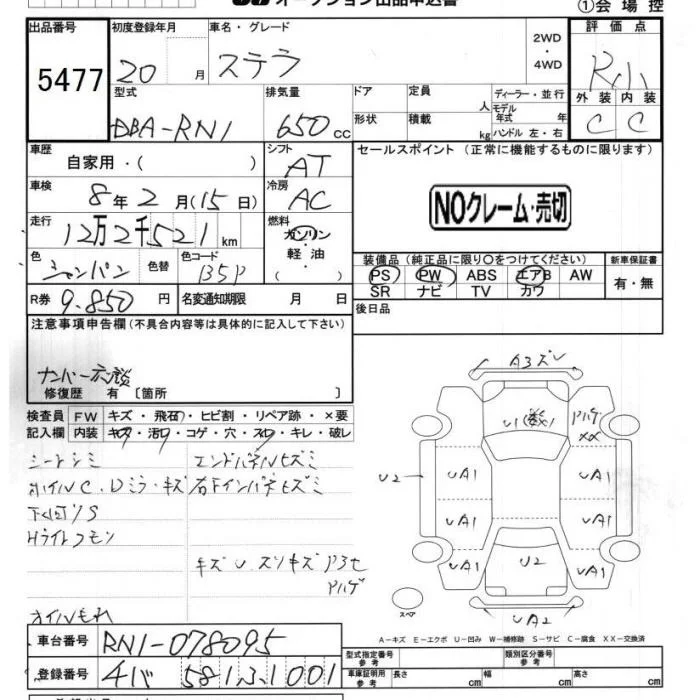 オークション出品申込書
①会場控
出品番号
5477
初度登録年月
20 月
車名・グレード
ステラ
2WD
・
4WD
評価点
R小
外装 内装
C C
型式
DBA-RN1
排気量
650 cc
ドア
定員
人
ディーラー・並行
モデル年式 年
形状
積載
kg
ハンドル 左・右
車歴
自家用・( )
シフト
AT
セールスポイント (正常に機能するものに限ります)
NOクレーム・売切
車検
8年2月(15日)
冷房
AC
走行
12万2千521km
燃料
ガソリン・
軽油・
( )
色
シャンパン
色替
色コード
B5P
装備品 (純正品に限り○をつけてください)
PS PW ABS エアB AW
SR ナビ TV カワ
新車保証書
有・無
R券
9.850円
名変通知期限 月 日
後日品
注意事項申告欄(不具合内容等は具体的に記入して下さい)
ナンバー
修復歴 有 [箇所 ]
検査員 FW キズ・飛石・ヒビ割・リペア跡・×要
記入欄 内装 キズ・汚れ・コゲ・穴・スレ・キレ・破レ
シートシミ
エンドパネルヒズミ
ホイルC.Dミラーキズ
右下インパネヒズミ
下廻りS
Hライトクモリ
キズU.スリキズ
オイルもれ
A3ズレ
U1
XX
U2
UA1 UA1
UA1 UA1
UA1 U2 UA1
UA2
スペア
A-キズ E-エクボ U-凹み W-補修跡 S-サビ C-腐食 XX-交換済
車台番号
RN1-078095
型式指定番号
参考
類別区分番号
参考
登録番号
581
1001
車庫証明用
参考
長さ cm
幅 cm
高さ cm